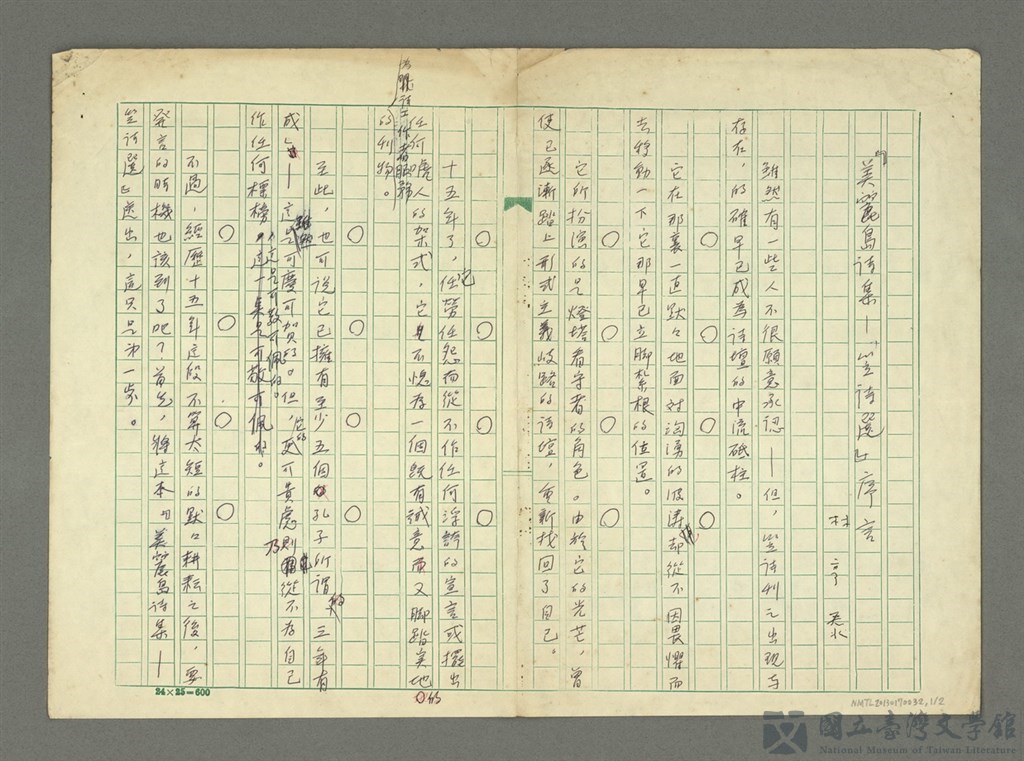 『美麗島詩集——「笠詩選」』序言
林亨泰
雖然有一些人不很願意承認——但，笠詩刊之出現与
存在，的確早已成為詩壇的中流砥柱。
它在那裏一直默々地面对洶湧的波濤却從不因畏懼而
去移動一下它那早已立脚紮根的位置。
它所扮演的是燈塔看守者的角色。由於它的光芒，曾
使已逐漸踏上形式主義歧路的詩壇，重新找回了自己。
十五年了，它任勞任怨而從不作任何浮誇的宣言或擺出
任何唬人的架式，它是不愧為一個既有誠意又脚踏实地的
為職詩工作者服務
的刊物。
至此，也可說它已擁有至少五個孔子所謂的「三年有
成」——這雖可慶可賀的。但，它的更可貴處則乃從不為自己
作任何標榜，這是可敬可佩的。
這一集是可敬可佩的。
不過，經歷十五年這段不算太短的默々耕耘之後，要
發言的时機也該到了吧？首先，將這本『美麗島詩集——
笠詩選』选出，這只是第一步。
24×25=600
NMTL20130170032,1/2
國立臺灣文學館
National Museum of Taiwan Literature